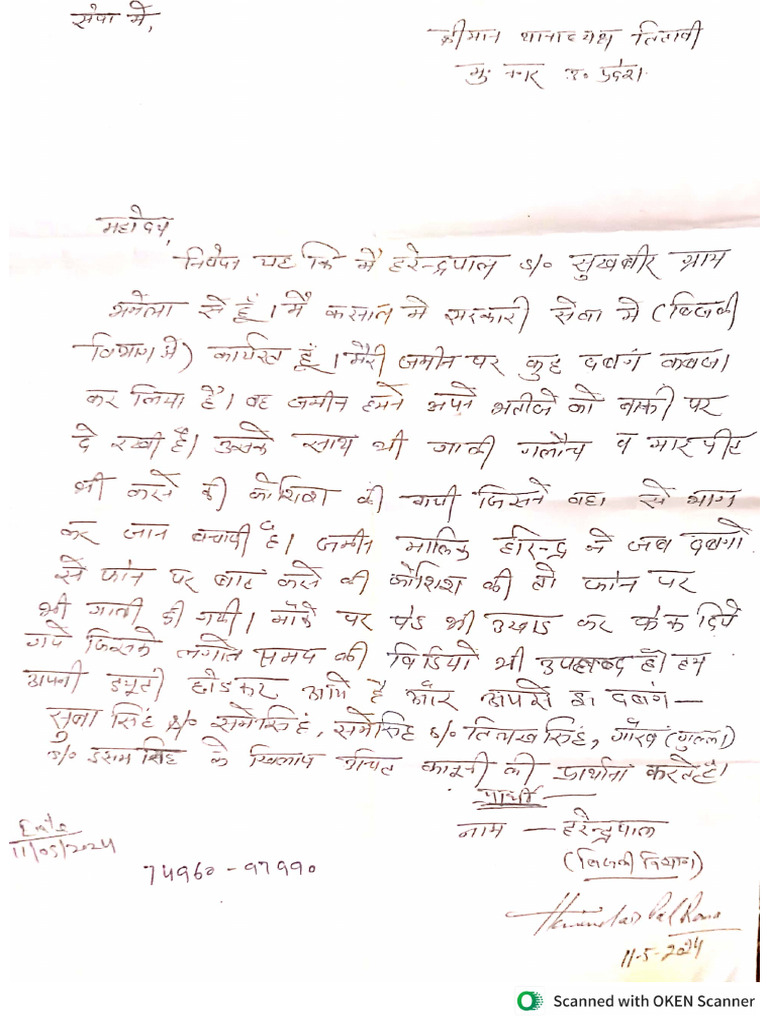 सेवा में,
श्रीमान थानाध्यक्ष तितावी
मु: नगर उ० प्रदेश
महोदय,
निवेदन यह कि मैं हरेन्द्रपाल S/o सुखबीर ग्राम
से हूँ। मैं करनाल में सरकारी सेवा में (बिजली
विभाग में) कार्यरत हूं। मेरी जमीन पर कुछ दबंग कबजा
कर लिया है। वह जमीन हमने अपने भतीजे को बाकी पर
दे रखी है। उसके साथ भी गाली गलौच व मारपीट
भी करने की कोशिश की गयी जिसने वहा से भाग
कर जान बचायी है। जमीन मालिक हरेन्द्र ने जब दबंगो
से फोन पर बात करने की कोशिश की तो फोन पर
भी गाली दी गयी। मौके पर पेड भी उखाड कर फेंक दिये
गये जिसके लगाते समय की विडियो भी उपलब्द है। हम
अपनी ड्यूटी छोडकर आये है और आपसे इन दबंग —
सुना सिंह S/o समेसिंह, समेसिंह S/o तिलखसिंह, गौरव (गुल्ला)
S/o सिंह के खिलाप उचित कानूनी की प्रार्थाना करते है।
प्रार्थी —
नाम — हरेन्द्रपाल
(बिजली विभाग)
Date
11/05/2024
74960-97990
11-5-2024
Scanned with OKEN Scanner